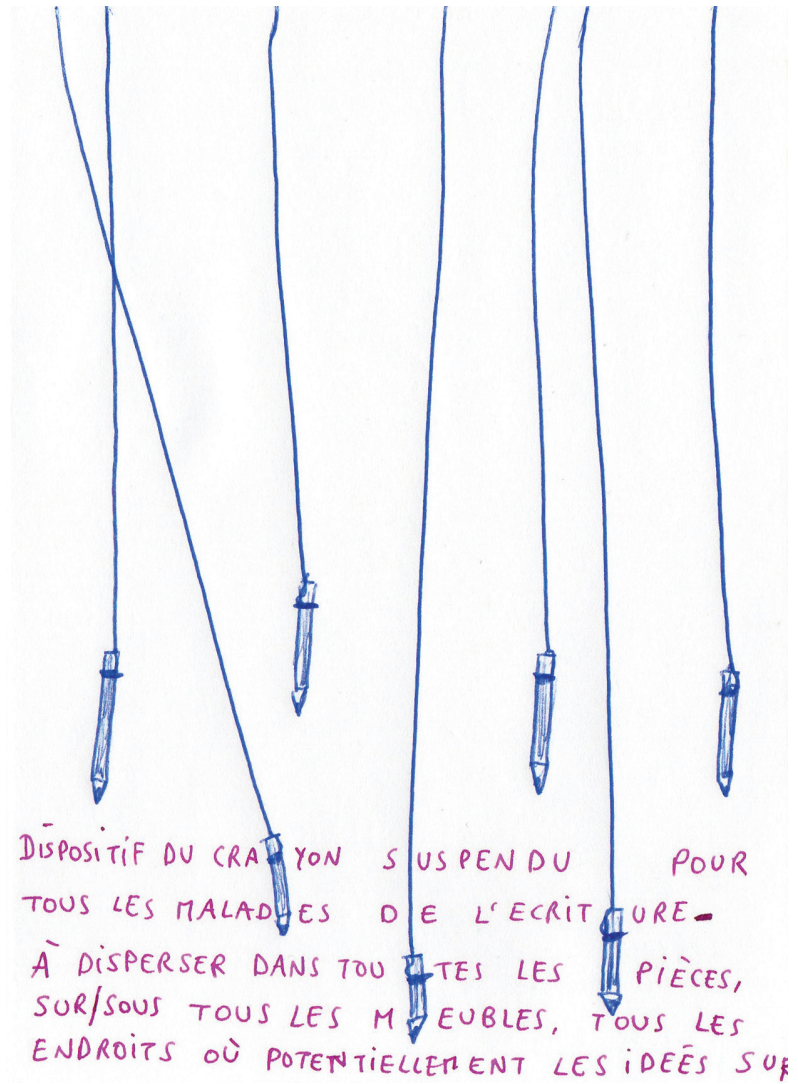 DISPOSITIF DU CRAYON SUSPENDU POUR
TOUS LES MALADES DE L'ECRITURE-
À DISPERSER DANS TOUTES LES PIÈCES,
SUR/SOUS TOUS LES MEUBLES, TOUS LES
ENDROITS OÙ POTENTIELLEMENT LES IDEÉS SUR